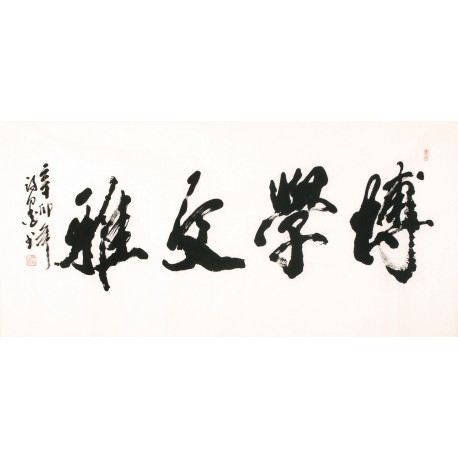 博學文雅
辛卯年